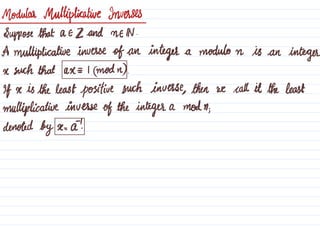 Modular Multiplicative Inverses
Suppose that a ∈ Z and n ∈ N.
A multiplicative inverse of an integer a modulo n is an integer
x such that ax ≡ 1 (mod n).
If x is the least positive such inverse, then we call it the least
multiplicative inverse of the integer a mod n,
denoted by x = a⁻¹.